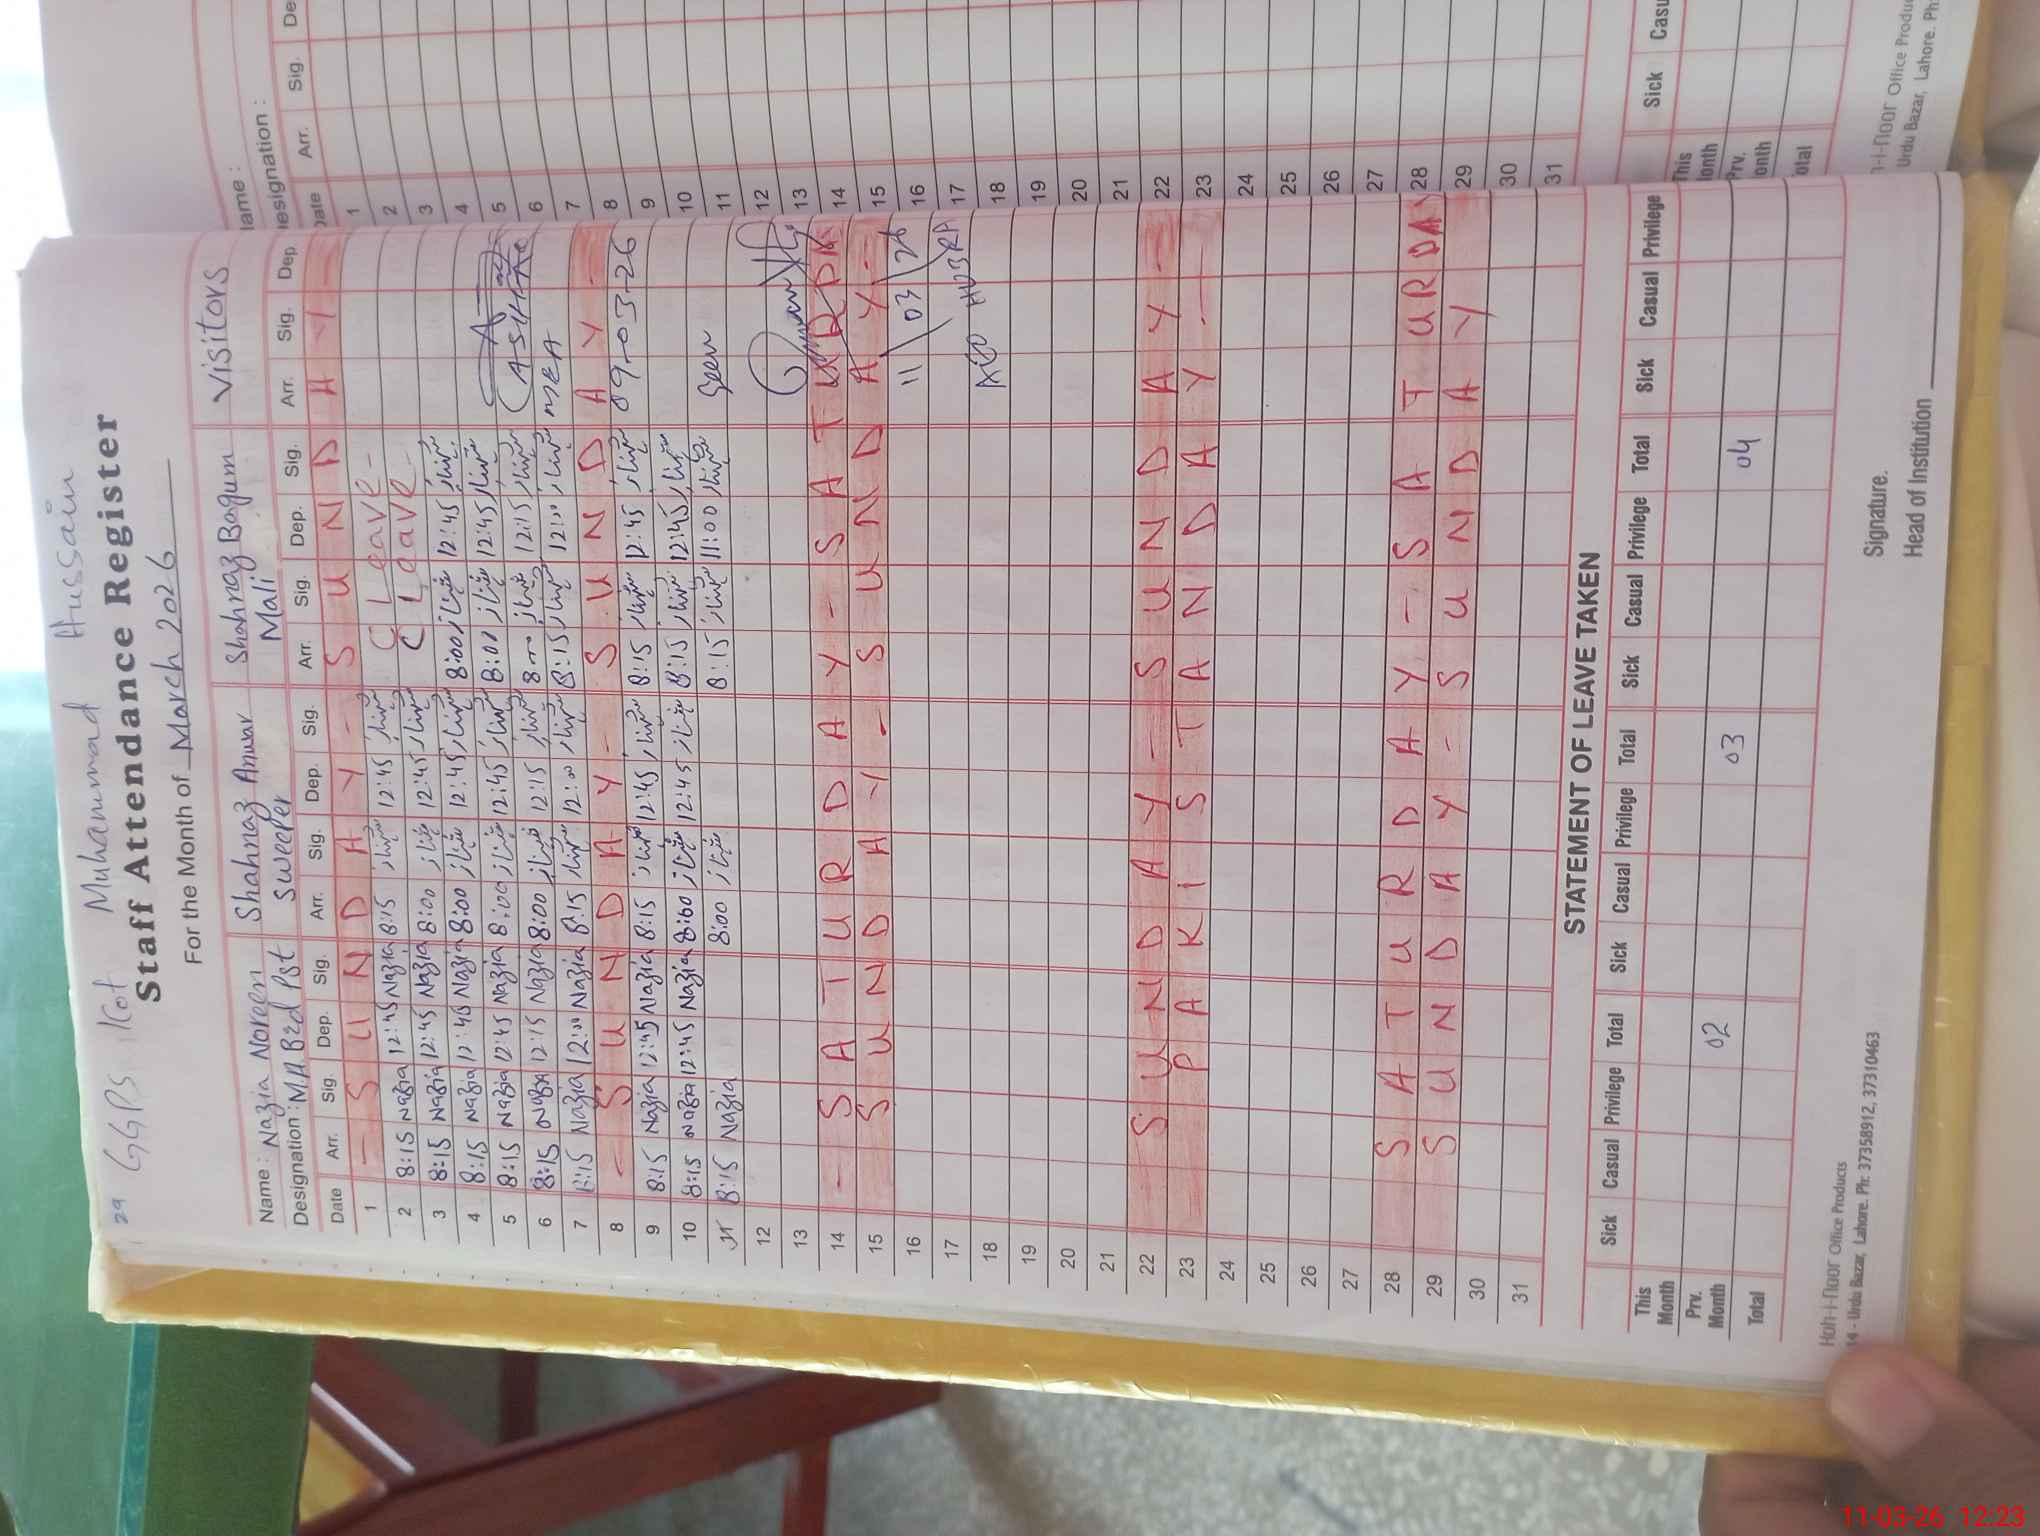 29 GGPS Kot Muhammad Hussain
Staff Attendance Register
For the Month of March 2026
Name : Nazia Noreen Shahnaz Anwar Shahnaz Bagum Visitors
Designation : M.A B.ed Pst Sweeper Mali
Date Arr. Sig. Dep. Sig. Arr. Sig. Dep. Sig. Arr. Sig. Dep. Sig. Arr. Sig. Dep.
1 - S U N D A Y - S U N D A Y -
2 8:15 Nazia 12:45 Nazia 8:15 شہناز 12:45 شہناز C Leave -
3 8:15 Nazia 12:45 Nazia 8:00 شہناز 12:45 شہناز C Leave -
4 8:15 Nazia 12:45 Nazia 8:00 شہناز 12:45 شہناز 8:00 شہناز 12:45 شہناز
5 8:15 Nazia 12:45 Nazia 8:00 شہناز 12:45 شہناز 8:00 شہناز 12:45 شہناز
6 8:15 Nazia 12:15 Nazia 8:00 شہناز 12:15 شہناز شہناز 12:15 شہناز
7 8:15 Nazia 12:00 Nazia 8:15 شہناز 12:00 شہناز 8:15 شہناز 12:00 شہناز MEA
8 - S U N D A Y - S U N D A Y -
9 8:15 Nazia 12:45 Nazia 8:15 شہناز 12:45 شہناز 8:15 شہناز 12:45 شہناز 09-03-26
10 8:15 Nazia 12:45 Nazia 8:00 شہناز 12:45 شہناز 8:15 شہناز 12:45 شہناز
11 8:15 Nazia 8:00 شہناز 8:15 شہناز 11:00 شہناز Seen
12
13
14 - S A T U R D A Y - S A T U R D A
15 S U N D A Y - S U N D A Y -
16 11 03 26
17
18
19
20
21
22 S U N D A Y - S U N D A Y -
23 P A K i S T A N D A Y -
24
25
26
27
28 S A T U R D A Y - S A T U R D A Y
29 S U N D A Y - S U N D A Y
30
31
STATEMENT OF LEAVE TAKEN
Sick Casual Privilege Total Sick Casual Privilege Total Sick Casual Privilege Total Sick Casual Privilege
This Month
Prv. Month 02 03 04
Total
Signature.
Head of Institution
Koh-i-noor Office Products
14 - Urdu Bazar, Lahore. Ph: 37358912, 37310463
Name :
Designation :
Date Arr. Sig.
1
2
3
4
5
6
7
8
9
10
11
12
13
14
15
16
17
18
19
20
21
22
23
24
25
26
27
28
29
30
31
Sick
This Month
Prv. Month
Total
Urdu Bazar, Lahore. Ph:
11-03-26 12:23